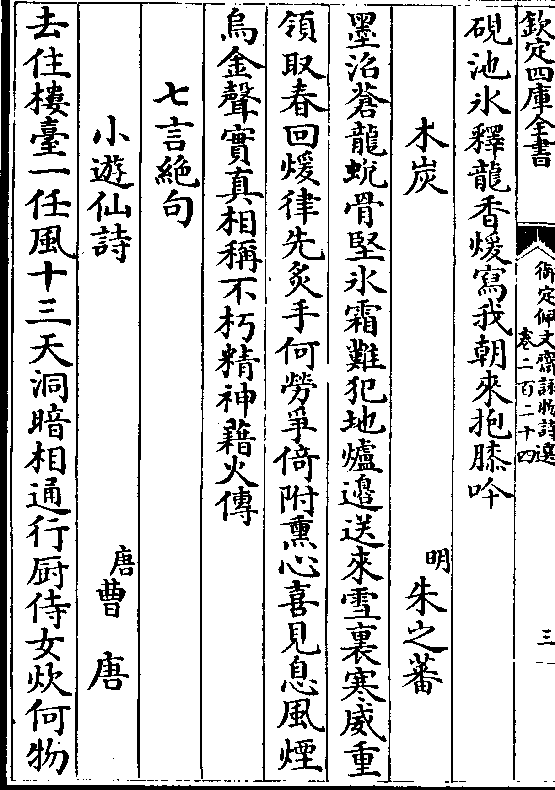 欽定四庫全書
御定佩文齋詠物詩選
卷二百二十四
三
硯池氷釋龍香煖寫我朝來抱膝吟
木炭
明朱之蕃
墨沼蒼龍蛻骨堅氷霜難犯地爐邊送來雪裏寒威重
領取春回煖律先炙手何勞爭倚附熏心喜見息風煙
烏金聲實真相稱不朽精神藉火傳
七言絶句
小遊仙詩
唐曹唐
去住樓臺一任風十三天洞暗相通行厨侍女炊何物